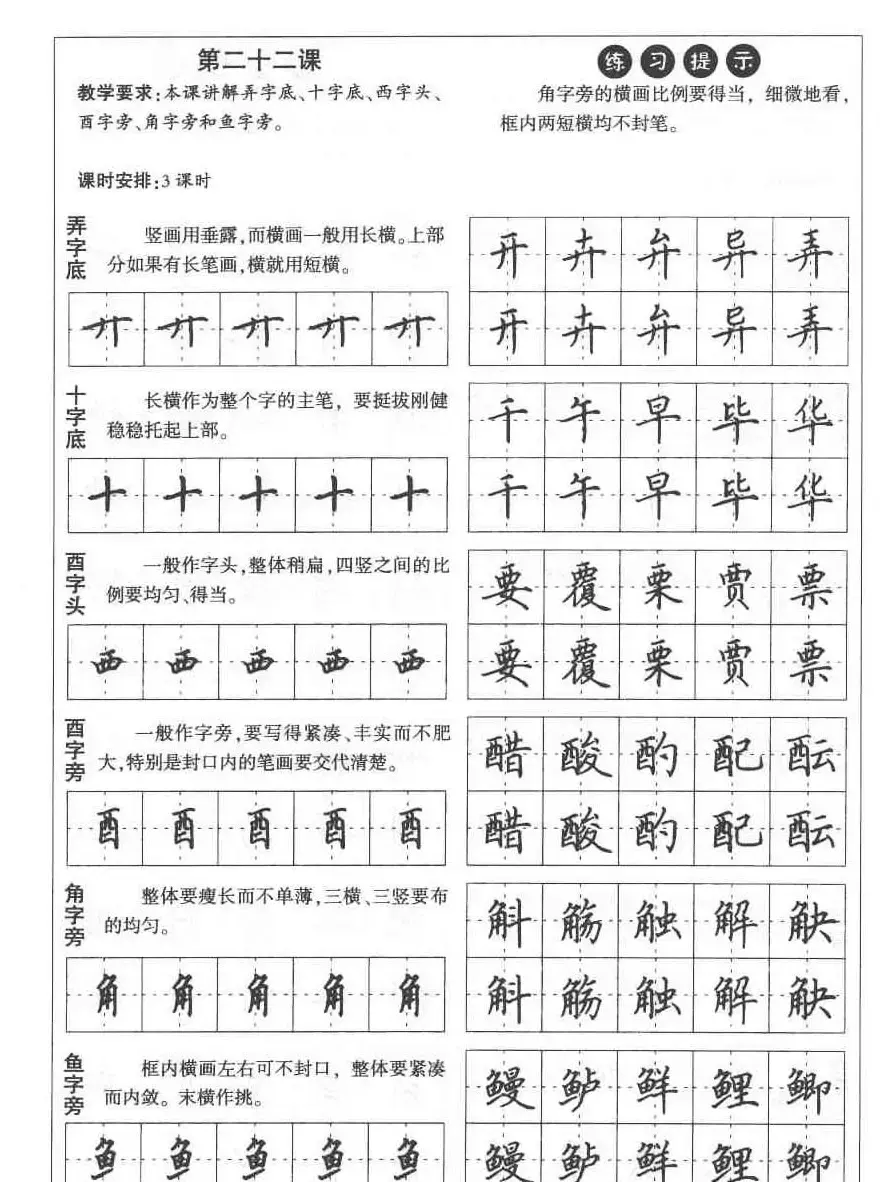 第二十二课
教学要求:本课讲解弄字底、十字底、西字头、
酉字旁、角字旁和鱼字旁。
课时安排:3课时
练习提示
角字旁的横画比例要得当，细微地看，
框内两短横均不封笔。
弄字底
竖画用垂露,而横画一般用长横。上部
分如果有长笔画,横就用短横。
廾 廾 廾 廾 廾
开 卉 弁 异 弄
开 卉 弁 异 弄
十字底
长横作为整个字的主笔，要挺拔刚健
稳稳托起上部。
十 十 十 十 十
千 午 早 毕 华
千 午 早 毕 华
酉字头
一般作字头,整体稍扁,四竖之间的比
例要均匀、得当。
西 西 西 西 西
要 覆 栗 贾 票
要 覆 栗 贾 票
酉字旁
一般作字旁,要写得紧凑、丰实而不肥
大,特别是封口内的笔画要交代清楚。
酉 酉 酉 酉 酉
醋 酸 酌 配 酝
醋 酸 酌 配 酝
角字旁
整体要瘦长而不单薄,三横、三竖要布
的均匀。
角 角 角 角 角
斛 觞 触 解 觖
斛 觞 触 解 觖
鱼字旁
框内横画左右可不封口，整体要紧凑
而内敛。末横作挑。
鱼 鱼 鱼 鱼 鱼
鳗 鲈 鲜 鲤 鲫
鳗 鲈 鲜 鲤 鲫